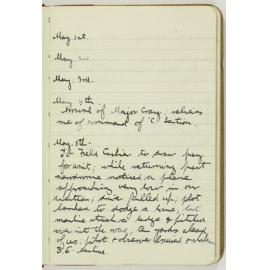 May. 1st.
May. 2nd.
May. 3rd.
May 4th.
Arrival of Major Craig, relieves
me of command of "C" Section.
May. 5th.
To Field Cashier to draw pay
for unit; while returning past
aerodrome noticed a plane
approaching very low in our
direction; drive pulled up, pilot
banked to dodge a tree, but
machine struck a hedge & pitched
into the way, 20 yards ahead
of us. pilot & observer unhurt
B.E. machine.